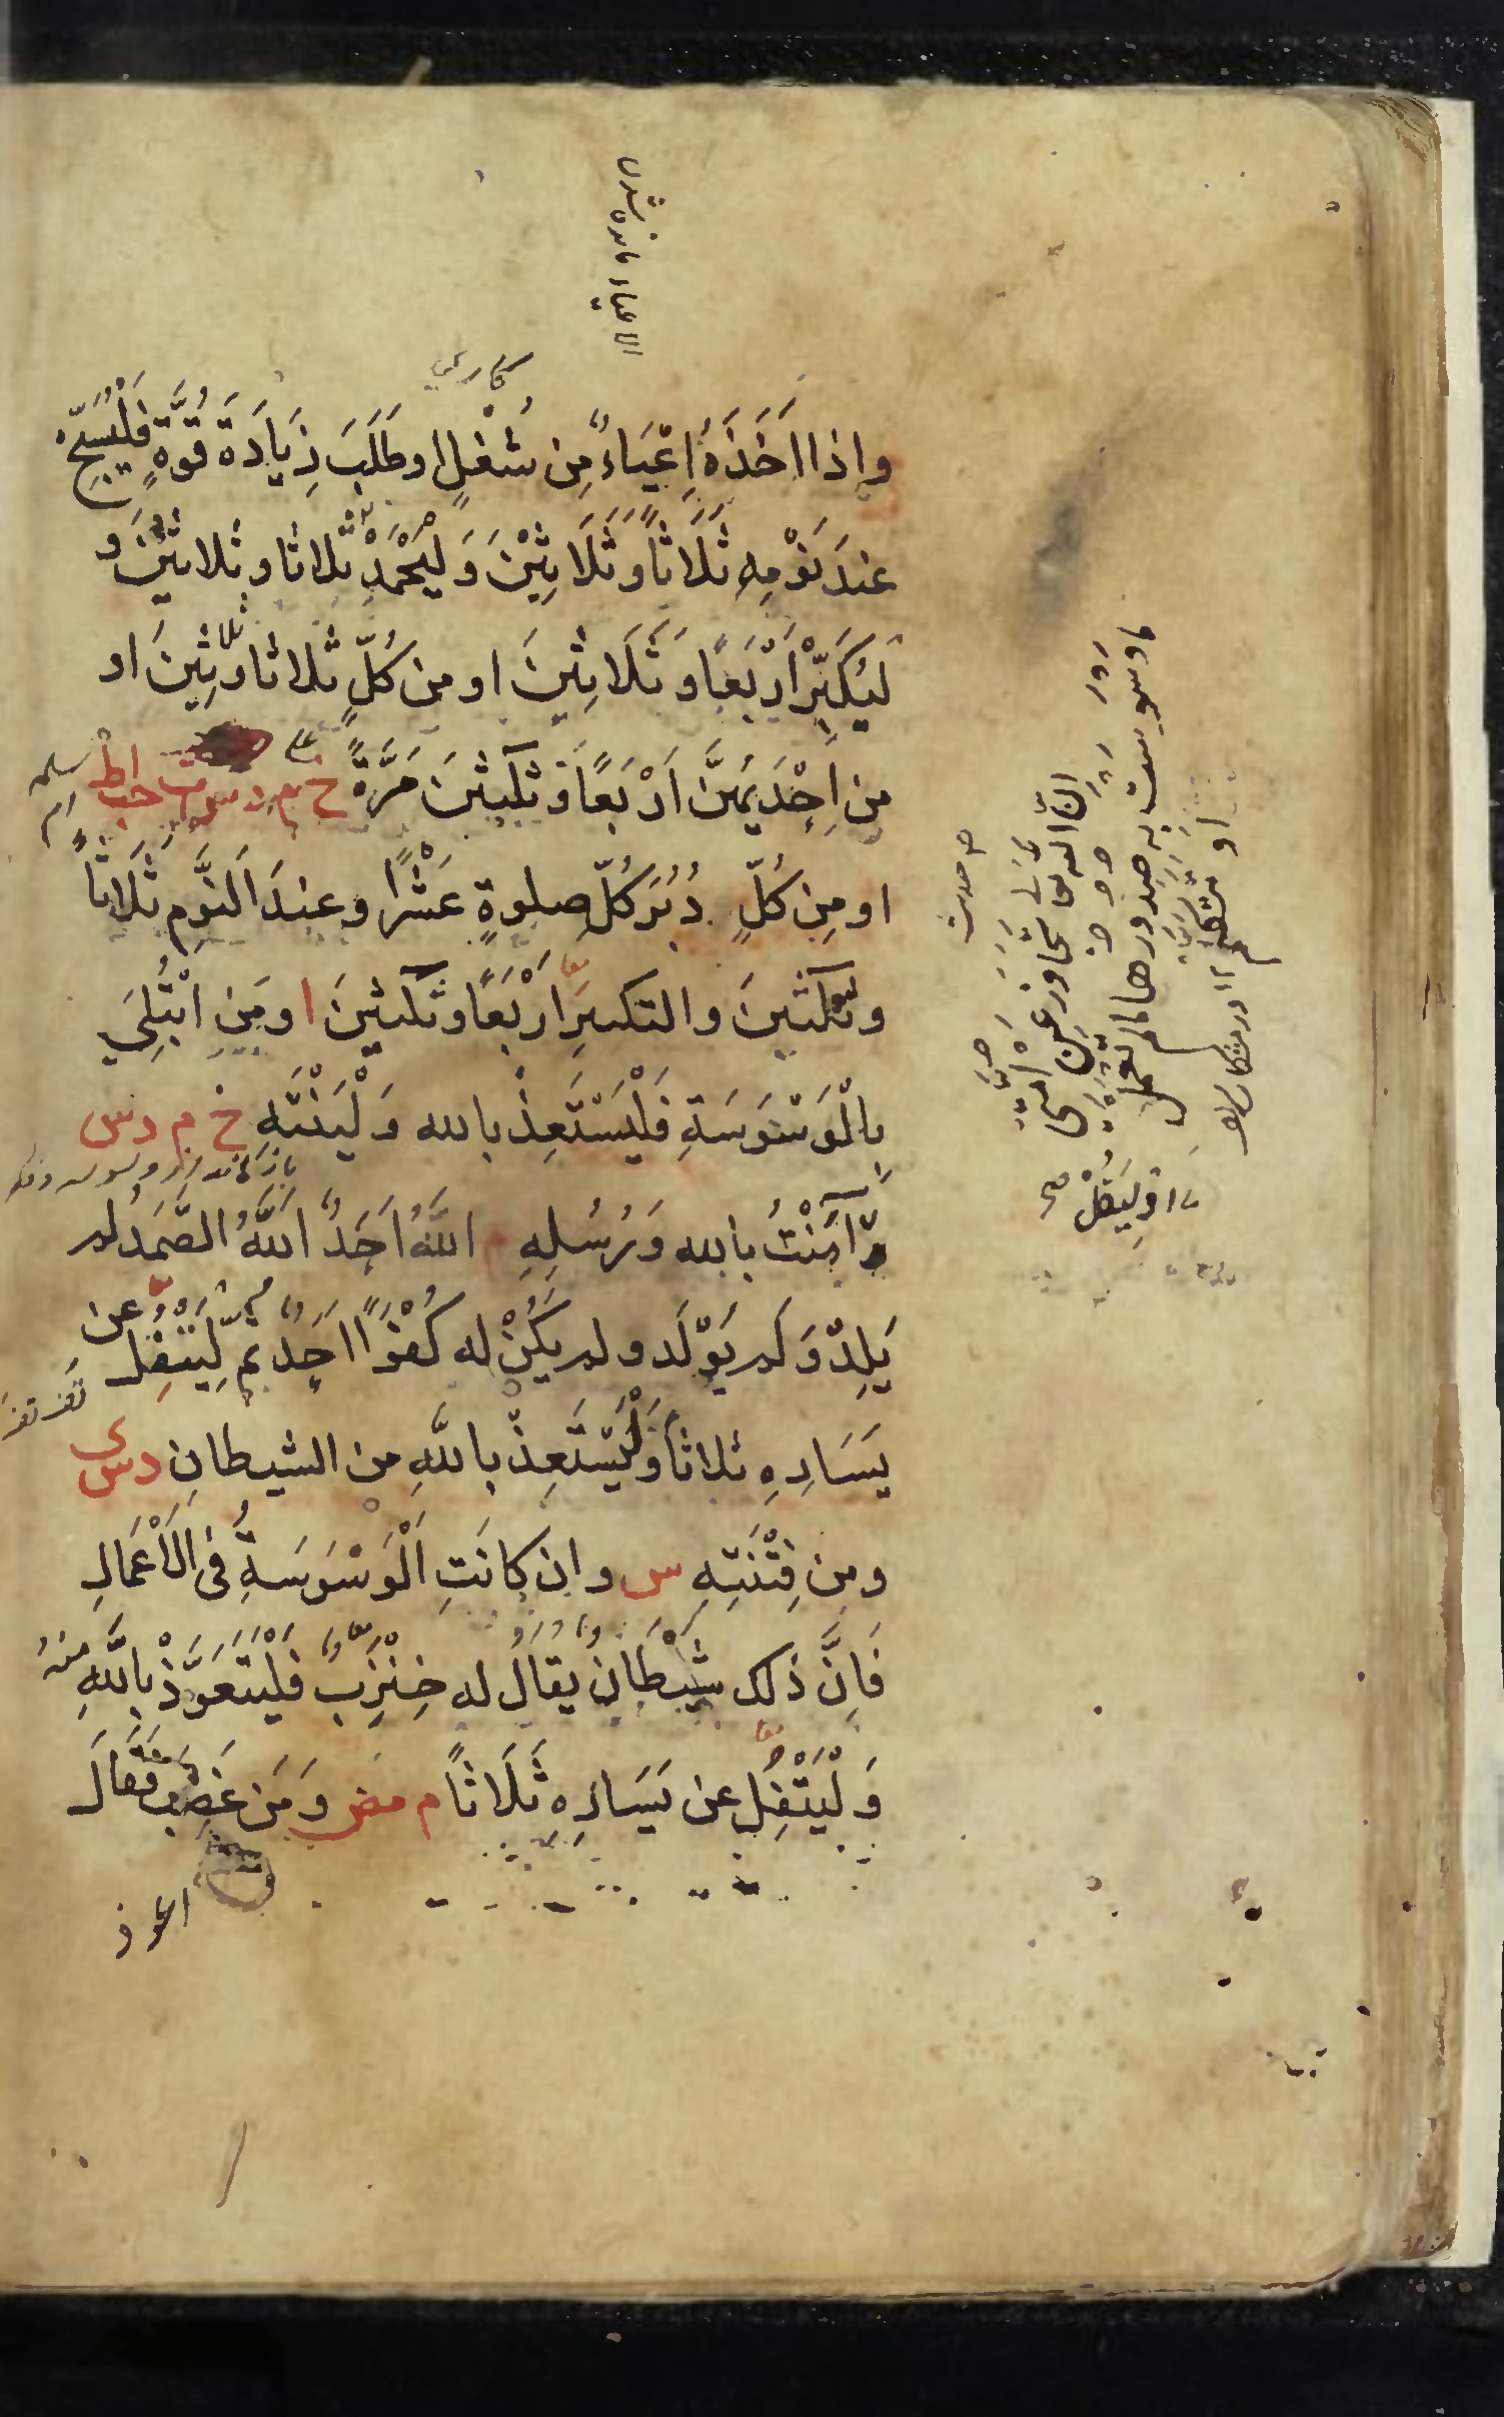 الاعياء مانده شدن
كاري
واذا اَخَذَهُ اِعْيَاءٌ مِن شُغْلٍ او طَلَبَ زِيَادَةَ قُوَّةٍ فَلْيُسَبِّحْ
عندَ نَوْمِهِ ثَلَاثًا وَثَلَاثِيْنَ وَلْيَحْمَدْ ثلاثا وثلاثينَ و
لْيُكَبِّرْ اَرْبَعًا وَثَلَاثِينَ او من كُلٍّ ثلاثا وثلاثِينَ او
مِن اِحْدَيهُنَّ اَرْبَعًا وَثلثِينَ مَرَّةً خ م د س ت حب اط
او مِن كُلٍّ دُبُرَ كُلِّ صلوةٍ عَشْرًا وعندَ النَّومِ ثَلَاثًا
وثلثينَ والتكبيرَ اَرْبَعًا وثلثينَ ا ومَنِ ابْتُلِيَ
بِالْوَسْوَسَةِ فَلْيَسْتَعِذْ بالله وَلْيَنْتَهِ خ م د س
آمَنْتُ بالله وَرُسُلِهِ م اللّٰهُ اَحَدٌ اَللّٰهُ الصَّمَدُ لم
يَلِدْ وَلم يُوْلَد ولم يَكُنْ له كُفُوًا اَحَدٌ ثم لْيَتْفِل عن
يَسَارِهِ ثلاثا وَلْيَسْتَعِذْ باللّٰهِ من الشيطانِ د س ى
ومِن فِتْنَتِهِ س وان كانَتِ الْوَسْوَسَةُ فى الْاَعْمَالِ
فَاِنَّ ذلك شَيْطَانٌ يُقالُ له خِنْزِبٌ فَلْيَتَعَوَّذْ باللّٰهِ منهُ
وَلْيَتْفِلْ عن يَسَارِهِ ثَلَاثًا م مص وَمَن غَضِبَ فَقَالَ
اعوذ
ان الله تعالى تجاوز عن امتي
ما وسوست به صدورها ما لم تعمل
او تتكلم ١٢